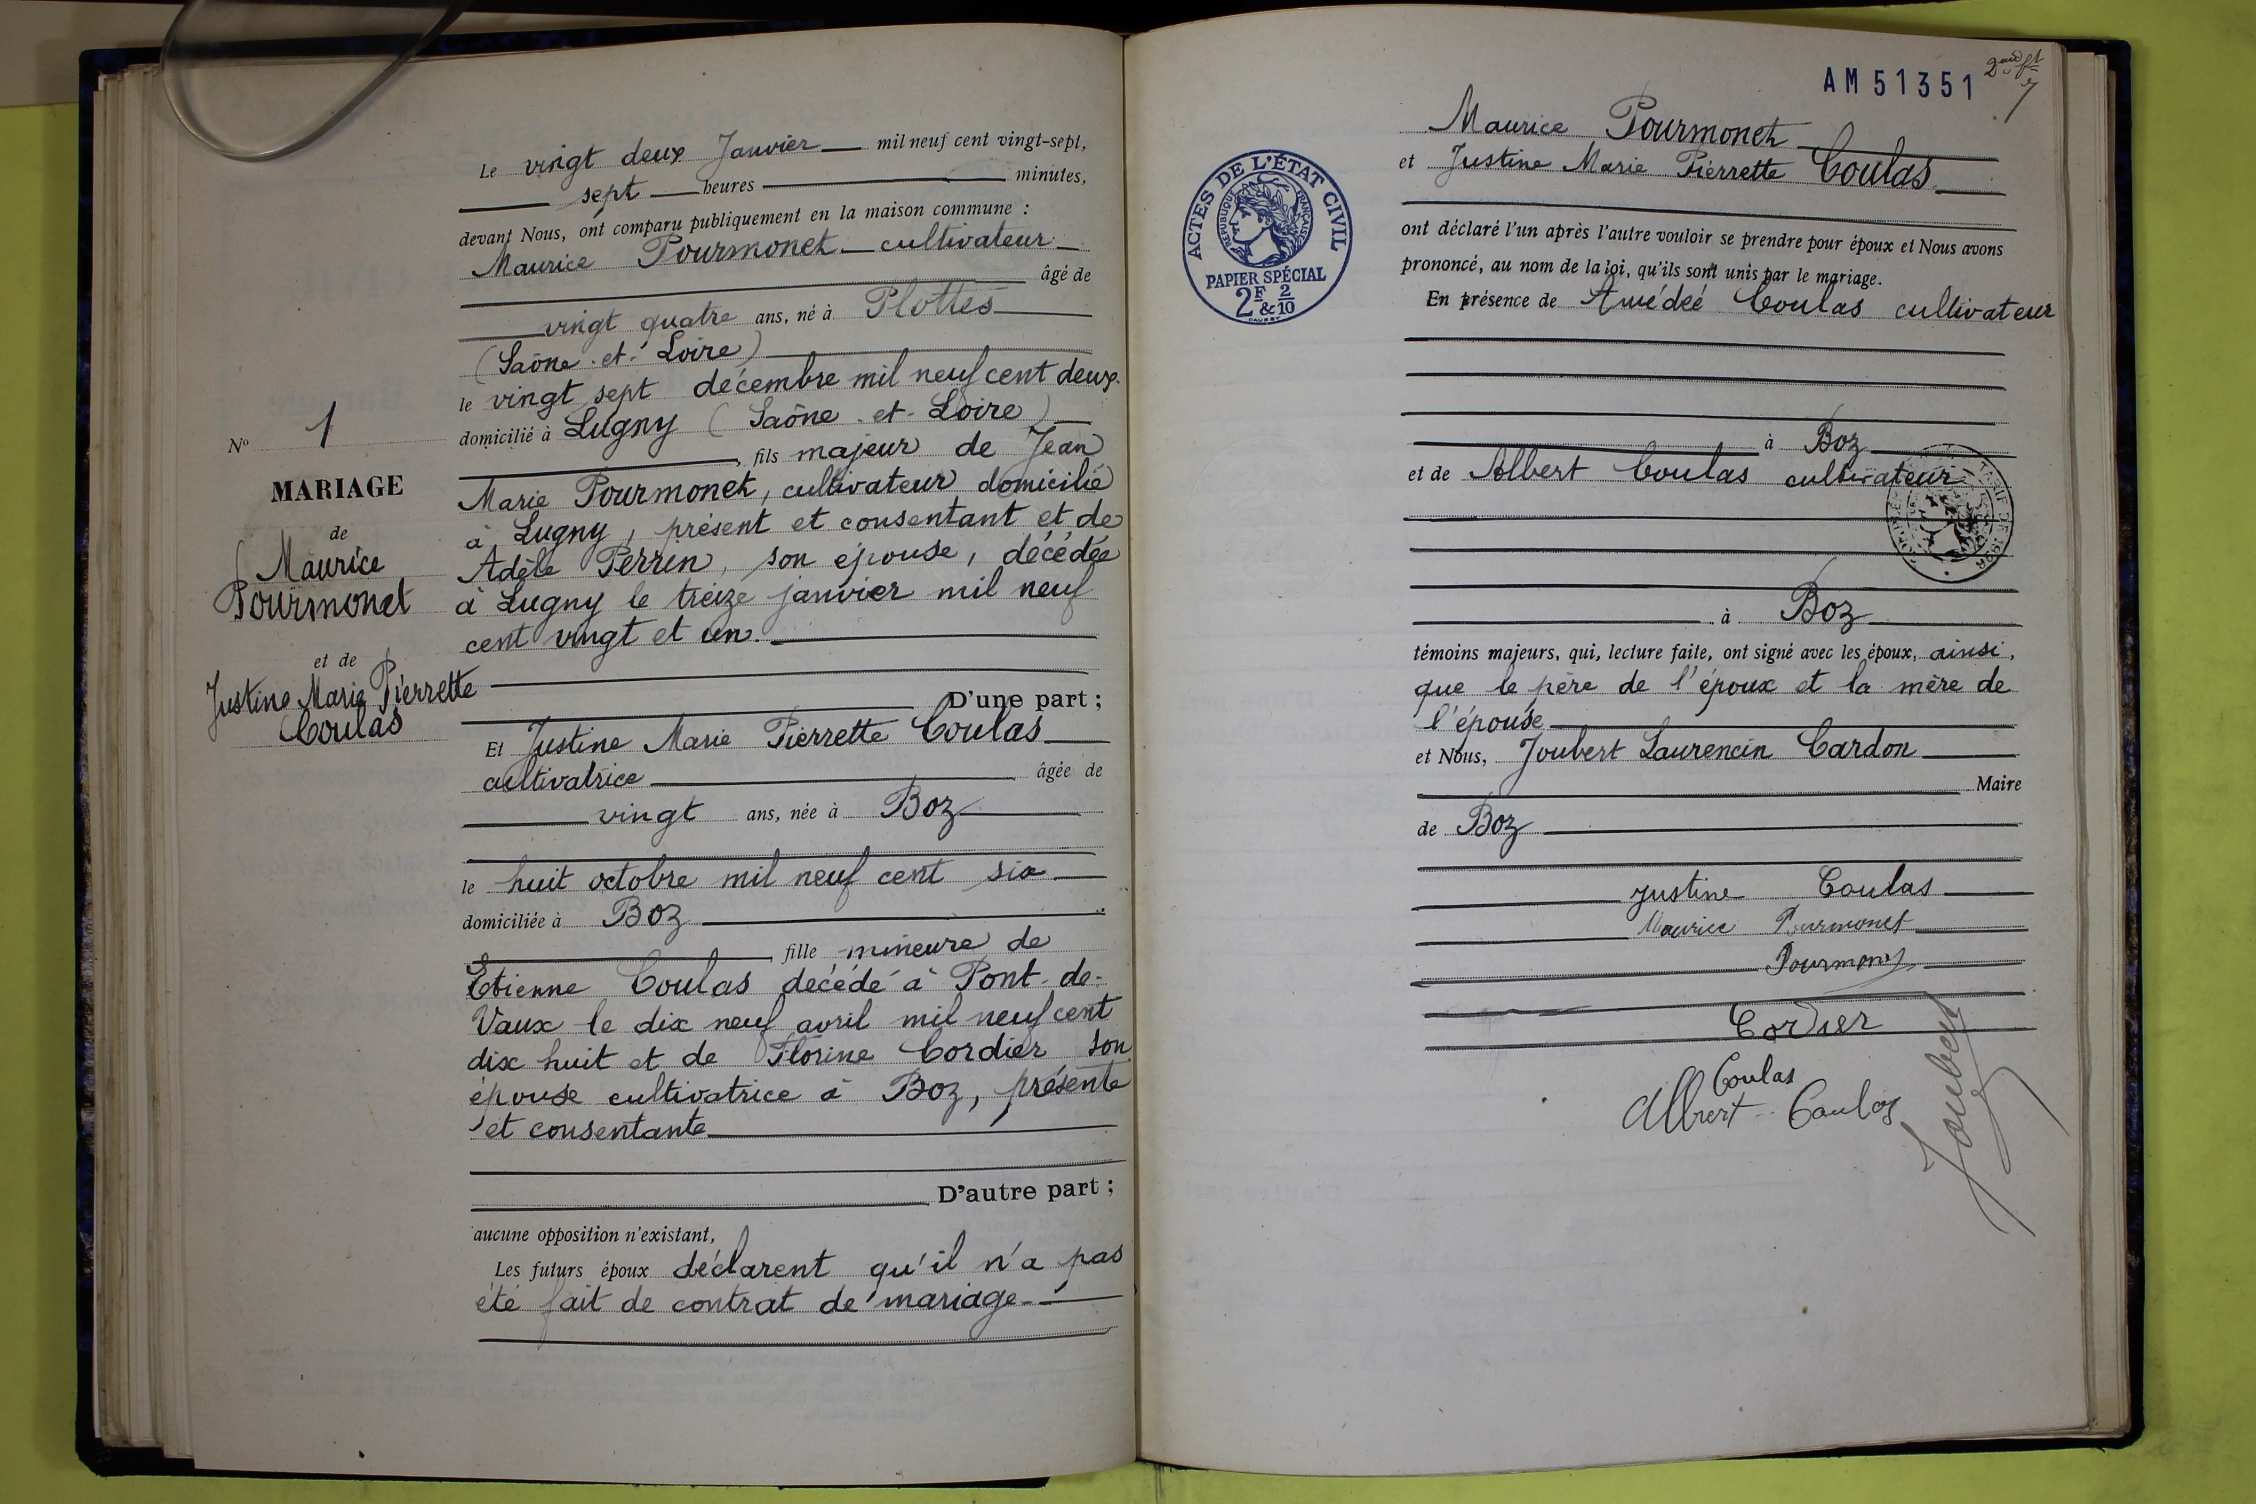 Le vingt deux Janvier mil neuf cent vingt-sept,
sept heures minutes,
devant Nous, ont comparu publiquement en la maison commune :
Maurice Pourmonet cultivateur
âgé de
vingt quatre ans, né à Plottes
(Saône-et-Loire)
le vingt sept décembre mil neuf cent deux
domicilié à Lugny (Saône-et-Loire)
, fils majeur de Jean
Marie Pourmonet, cultivateur domicilié
à Lugny, présent et consentant et de
Adèle Perrin, son épouse, décédée
à Lugny le treize janvier mil neuf
cent vingt et un.
D'une part ;
Et Justine Marie Pierrette Coulas
cultivatrice âgée de
vingt ans, née à Boz
le huit octobre mil neuf cent six
domiciliée à Boz
, fille mineure de
Etienne Coulas décédé à Pont-de-
Vaux le dix neuf avril mil neuf cent
dix huit et de Florine Cordier son
épouse cultivatrice à Boz, présente
et consentante
D'autre part ;
aucune opposition n'existant,
Les futurs époux déclarent qu'il n'a pas
été fait de contrat de mariage
No 1
MARIAGE
de
Maurice
Pourmonet
et de
Justine Marie Pierrette
Coulas
AM 51351
2
7
ACTES DE L'ÉTAT CIVIL
RÉPUBLIQUE FRANÇAISE
PAPIER SPÉCIAL
2F & 2/10
Maurice Pourmonet
et Justine Marie Pierrette Coulas
ont déclaré l'un après l'autre vouloir se prendre pour époux et Nous avons
prononcé, au nom de la loi, qu'ils sont unis par le mariage.
En présence de Amédée Coulas cultivateur
à Boz
et de Albert Coulas cultivateur
à Boz
témoins majeurs, qui, lecture faite, ont signé avec les époux, ainsi,
que le père de l'époux et la mère de
l'épouse
et Nous, Joubert Laurencin Cardon
Maire
de Boz
Justine Coulas
Maurice Pourmonet
Pourmonet
Cordier
Coulas
Albert Coulas
Joubert